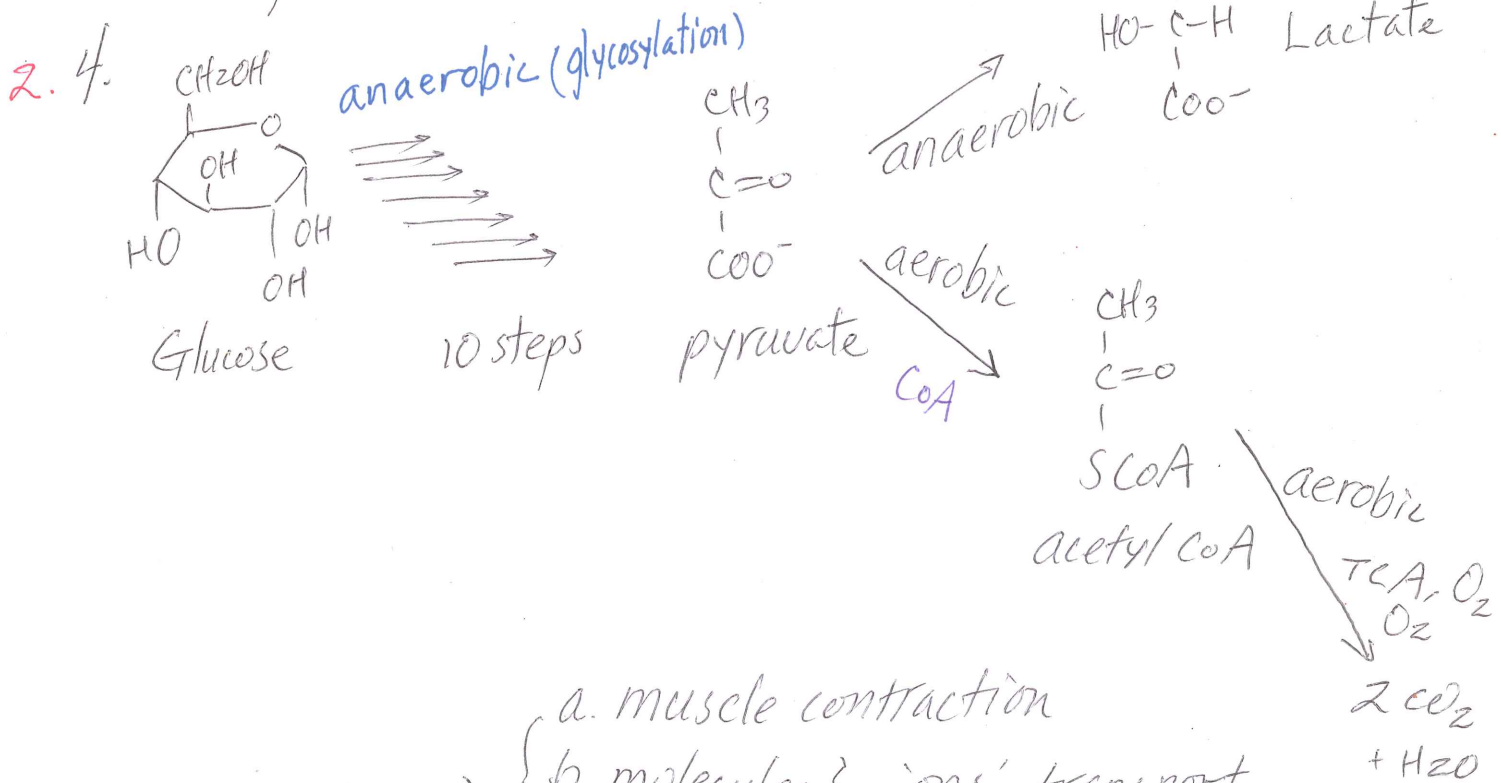 2. 4.
CH2OH
O
OH
HO
OH
OH
Glucose
anaerobic (glycosylation)
10 steps
CH3
C=O
COO-
pyruvate
anaerobic
HO-C-H
COO-
Lactate
aerobic
CoA
CH3
C=O
SCoA
acetyl CoA
aerobic
TCA, O2
O2
2 CO2
+ H2O
a. muscle contraction
b. transport